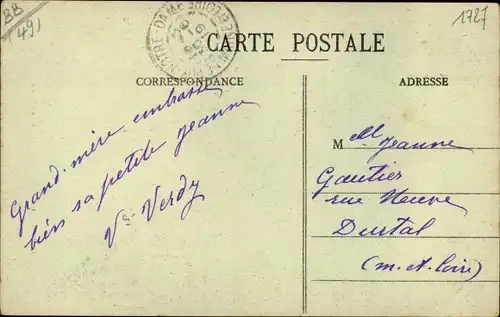 BB
(49)
1727
CARTE POSTALE
CORRESPONDANCE
ADRESSE
Grand-mère embrasse
bien sa petite Jeanne
Vve Verdy
Mell Jeanne
Gautier
rue Neuve
Durtal
(M.-et-Loire)